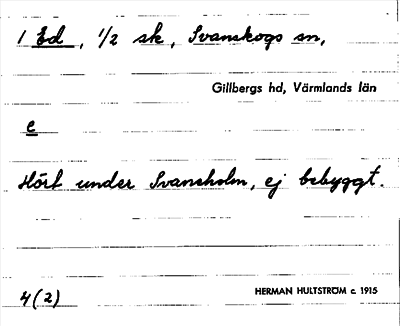 1 Ed, 1/2 sk, Svanskogs sn,
Gillbergs hd, Värmlands län
e
Hört under Svaneholm, ej bebyggt.
4(2)
HERMAN HULTSTRÖM c. 1915